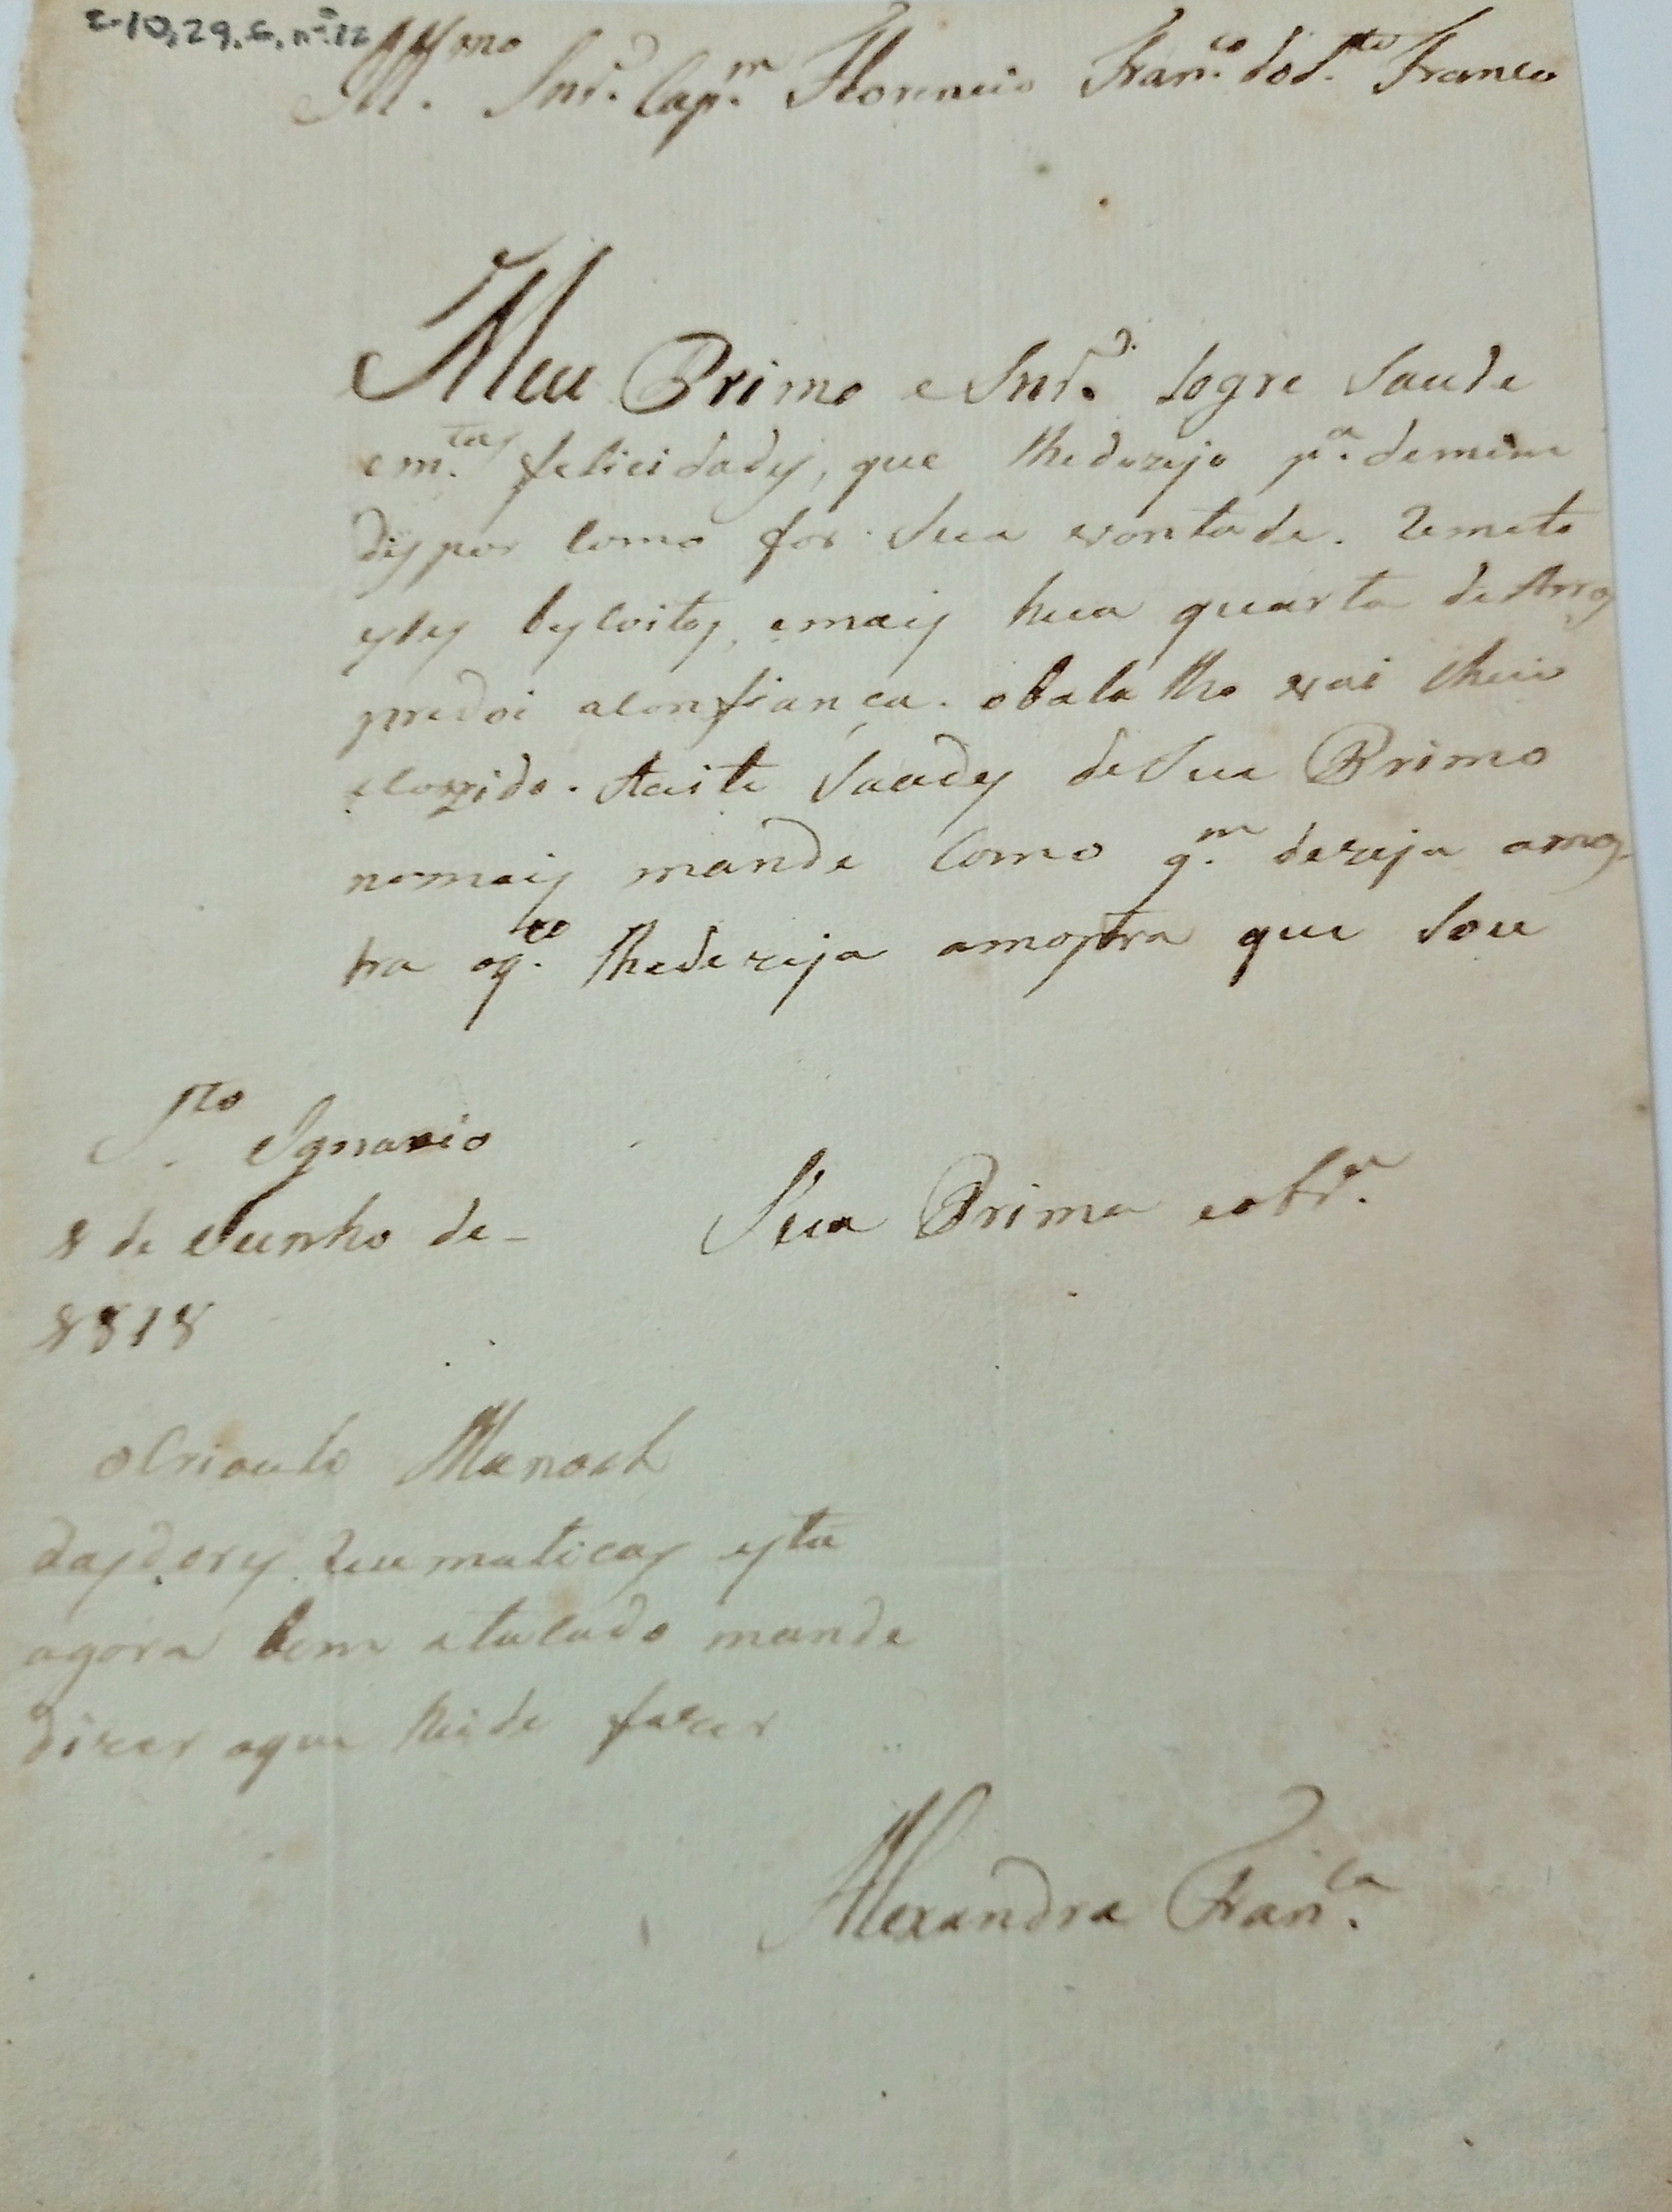 2-10,29,6, nº 12
Illmo Snr. Capm. Florencio Franco. dos Stos Franco
Meu Primo e Snr. logre Saude
e mtas felicidadys, que lhedezejo pa. demim
dyspor como for Sua vontade. Remeto
estes byscoitos, emays hua quarta de Arros
predoi aconfiança. obalaiho vai cheio
ecozido. Aceite Saudes deSua Primo
nomays mande como qm. dezeja amos-
tra oqto. lhedezeja amostra que Sou
Sto. Ignacio
8 de Junho de-
1818
Sua Prima eobra.
oCrioulo Manoel
daydorys Reumaticas esta
agora bem atacado mande
dizer oque heide fazer
Alexandra Franca.